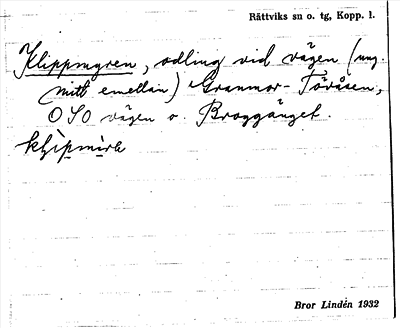 Rättviks sn o. tg, Kopp. l.
Klippmyren, odling vid vägen (ung.
mitt emellan) Granmor- Tövåsen,
OSO vägen o. Broggänget.
Bror Lindén 1932